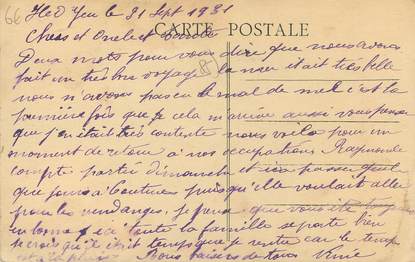 66
Ile D Yeu le 21 Sept 1921
CARTE POSTALE
Chers et Oncle et
Deux mots pour vous dire que nous avons
fait un très bon voyage la mer était très belle
nous n'avons pas eu le mal de mer c'est la
première fois que cela m'arrive aussi vous pensez
que j'étais très contente nous voilà pour un
moment de retour à nos occupations Raymonde
compte partir dimanche et ira passer quel
que jours à puis qu'elle voulait aller
pour les vendanges, je pense que vous êtes
en bonne ici toute la famille se porte bien
je crois qu'il était temps que je rentre car le temps
Bons baisers de tous